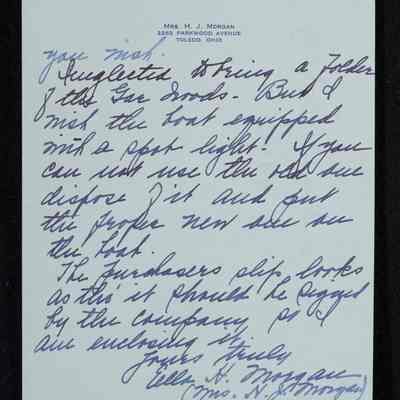 MRS. H. J. MORGAN
2265 PARKWOOD AVENUE
TOLEDO, OHIO
you wish.
I neglected to bring a folder
of the Gar Woods - But I
wish the boat equipped
with a spot light. If you
can not use the old one
dispose of it and put
the proper new one on
the boat.
The purchasers slip looks
as tho' it should be signed
by the company so I
am enclosing it.
Yours truly
Ella H. Morgan
(Mrs. H. J. Morgan)